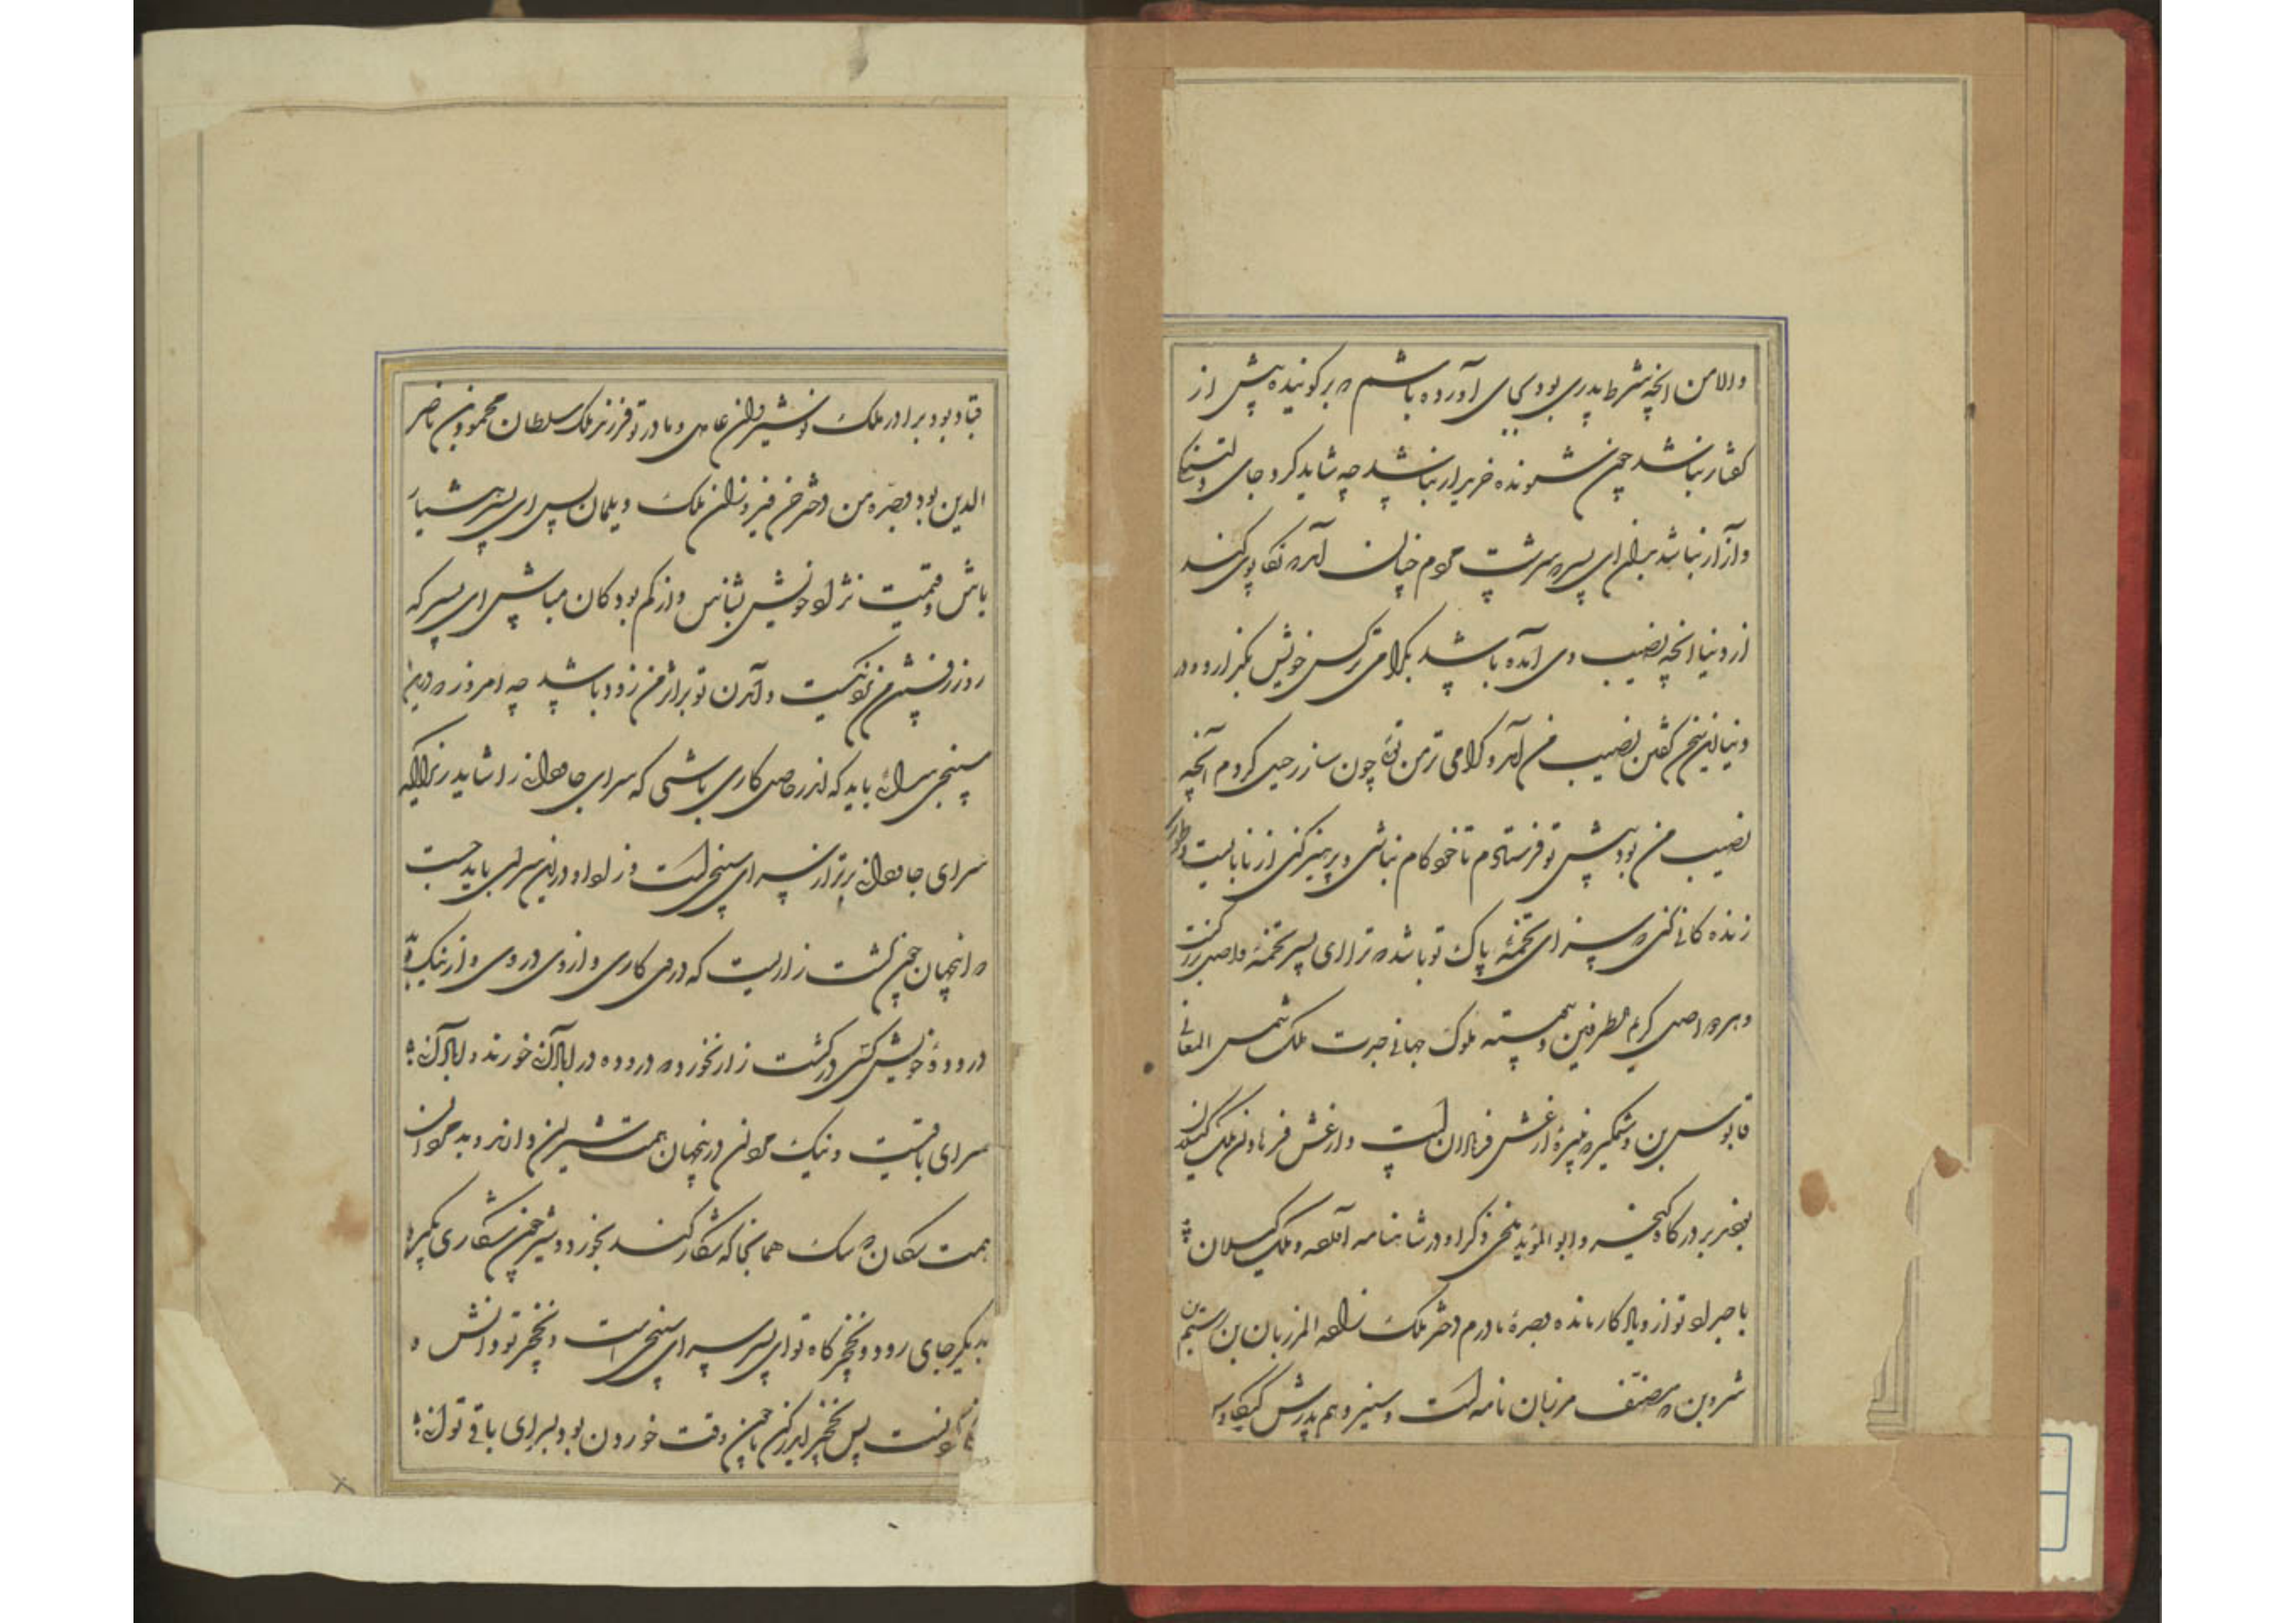 والا من انچه شرط پدری بود بجای آورده باشم که بر گوینده بیش از
گفتار نباشد چون شنونده خریدار نباشد چه شاید کرد جای دلتنگی
و آزار نباشد بدان ای پسر که سرشت مردم چنان آمد که تکاپوی کند
از دنیا انچه نصیب وی آمده باشد بگرامی‌تر کس خویش بگذارد و در
دنیا این سخن گفتن نصیب من آمد و گرامی‌تر من توئی چون ساز رحیل کردم آنچه
نصیب من بود پیش تو فرستادم تا خود کام نباشی و پرهیز کنی از نابایست و چنان
زنده کانی کنی که سزای تخمهٔ پاک تو باشد که ترا ای پسر تخمهٔ و اصلی بزرگست
و هر دو اصل کریم الطرفین و پیوسته ملوک جهانی جدت ملک شمس المعالی
قابوس بن وشمگیر که نبیرهٔ ارغش فرهادان است و ارغش فرهادان ملک گیلان
بروزگار کیخسرو ابو المؤید بلخی ذکر او در شاهنامه آورده و ملک گیلان
با جدان تو ازو یادگار مانده و جدهٔ مادرم دختر ملک زاده المرزبان بن رستم بن
شروین که مصنف مرزبان نامه است و سیزدهم پدرش کیکاوس
قباد بود برادر ملک نوشیروان عادل و مادر تو فرزند ملک سلطان محمود بن ناصر
الدین بود و جدهٔ من دختر حسن فیروزان ملک دیلمان پس ای پسر هشیار
باش و قیمت نژاد خویش بشناس و از کم بودکان مباش ای پسر که
روز رفتن من نزدیکست و آمدن تو بر اثر من زود باشد چه امروز که درین
سپنجی سرائی باید که اندر حاصل کاری باشی که سرای جاودانی را شاید زیرا که
سرای جاودانی برتر از سرای سپنجی است و زاد او درین سرای باید جست
که اینجهان چون کشت زاریست که در وی کاری و از وی دروی و از نیک و بد
درودهٔ خویش کس در کشت زار نخورد که دروده در آبادانی خورند و آبادانی
سرای باقیست و نیک مردان درینجهان همت شیران دارند و بد مردان
همت سگان که سگ همانجا که شکار کند بخورد و شیر چون شکاری بگیرد
بدیگر جای رود و نخچیرگاه تو ای پسر سرای سپنجی است و نخچیر تو دانش و
نیکوئیست پس نخچیر ایدر کن تا چون وقت خوردن بود بسرای باقی توانی